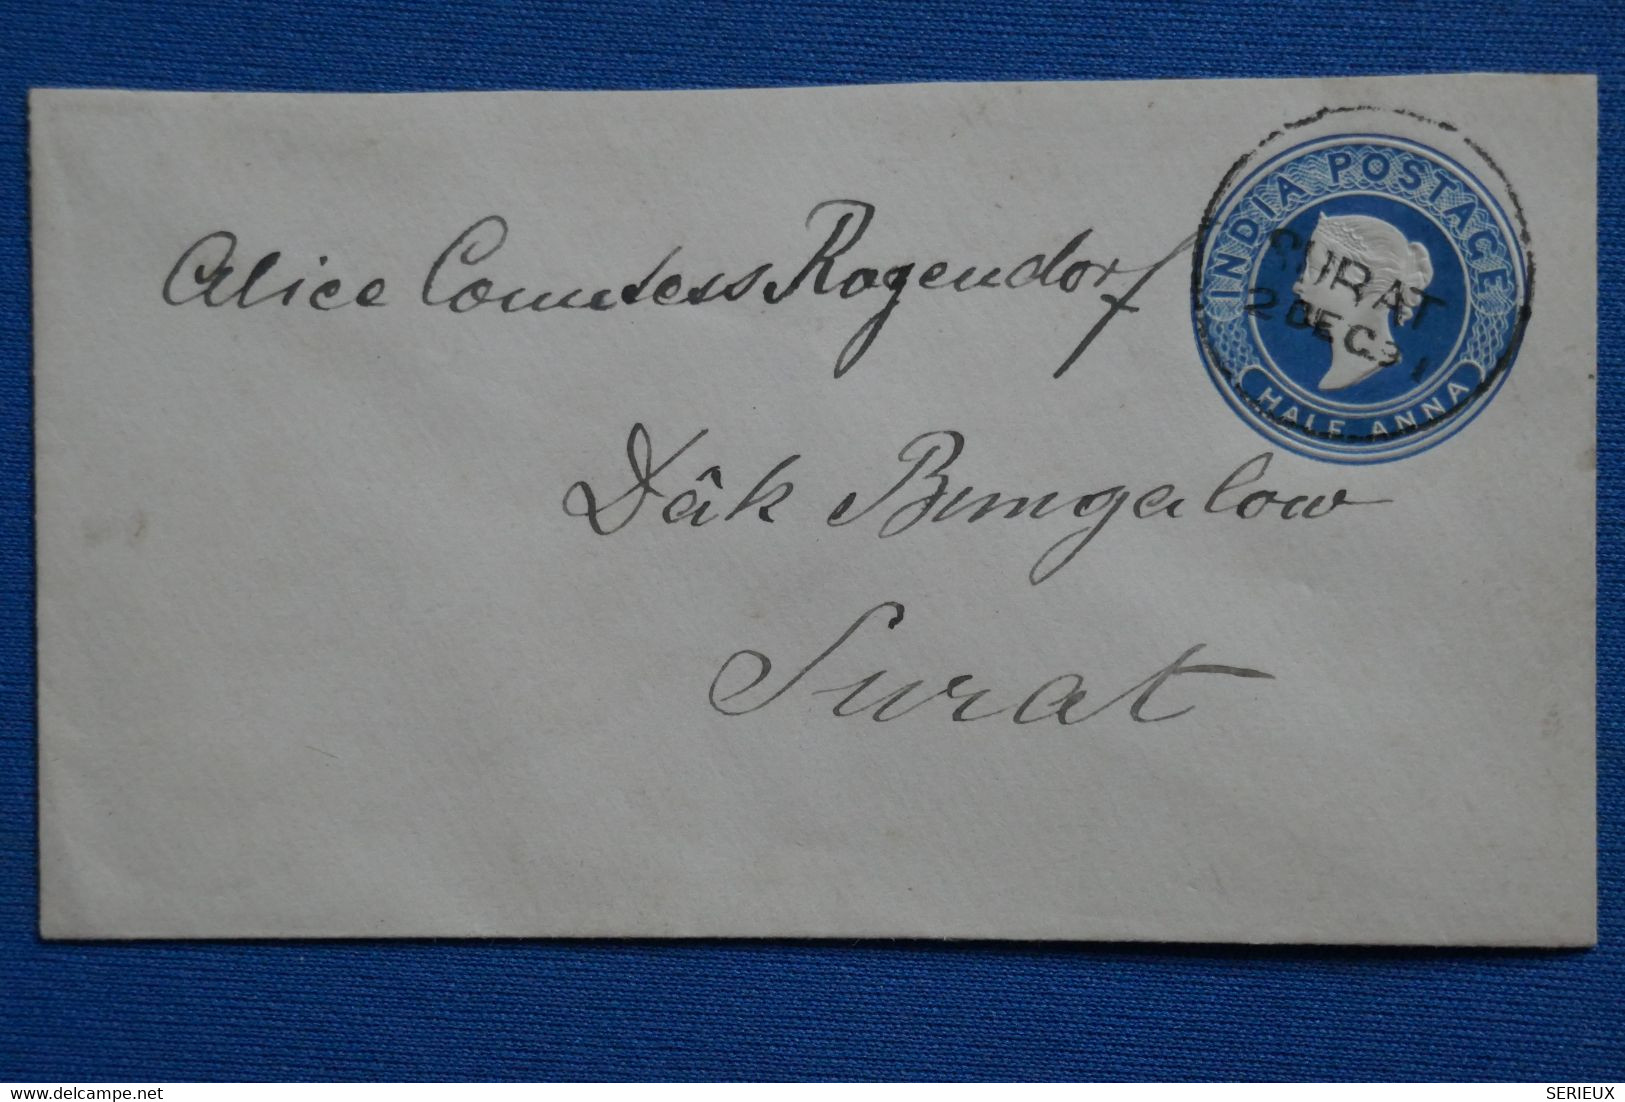 INDIA POSTAGE
SURAT
2 DEC 91
HALF ANNA
Alice Comtess Rogendorf
Dâk Bungalow
Surat
delcampe.net
SERIEUX